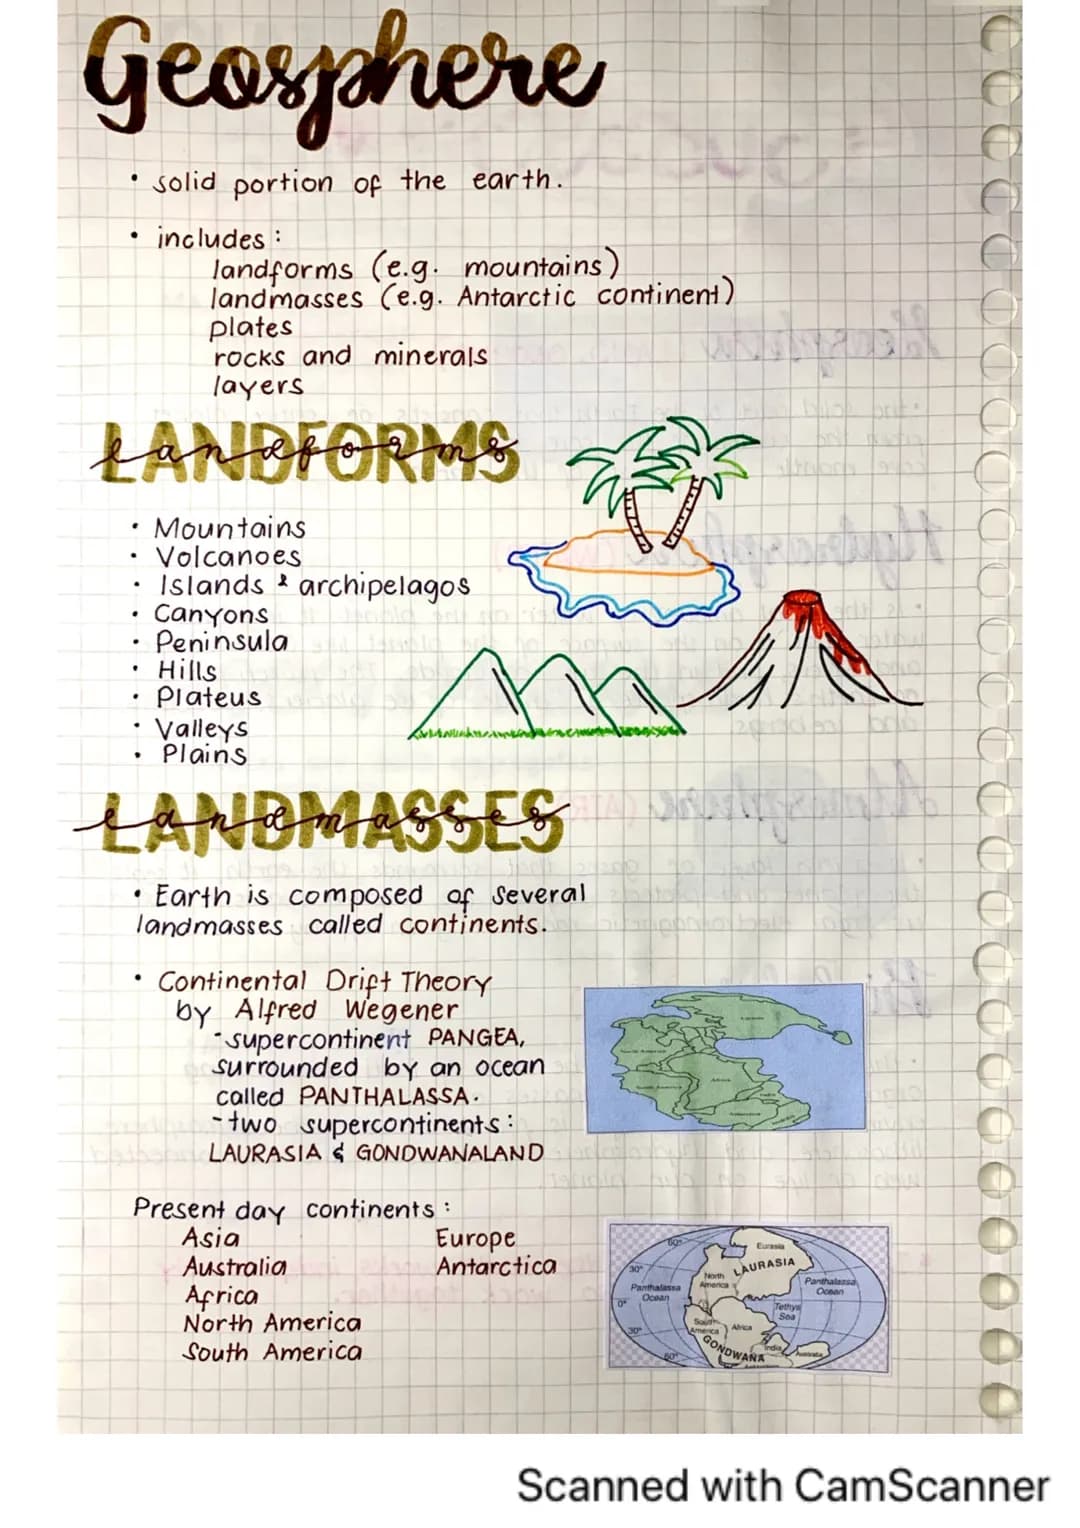 Geosphere
• solid portion of the earth.
• includes:
landforms (e.g. mountains)
landmasses (e.g. Antarctic continent)
plates
rocks and minerals
layers
LANDFORMS
landforms
• Mountains
• Volcanoes
• Islands & archipelagos
• Canyons
• Peninsula
• Hills
• Plateus
• Valleys
• Plains
LANDMASSES
landmasses
• Earth is composed of several
landmasses called continents.
• Continental Drift Theory
by Alfred Wegener
-supercontinent PANGEA,
surrounded by an ocean
called PANTHALASSA.
-two supercontinents:
LAURASIA & GONDWANALAND
Present day continents:
Asia Europe
Australia Antarctica
Africa
North America
South America
60°
Eurasia
30°
North America
LAURASIA
Panthalassa Ocean
Panthalassa Ocean
0°
Tethys Sea
South America
Africa
30°
India
Australia
GONDWANA
60°
Scanned with CamScanner